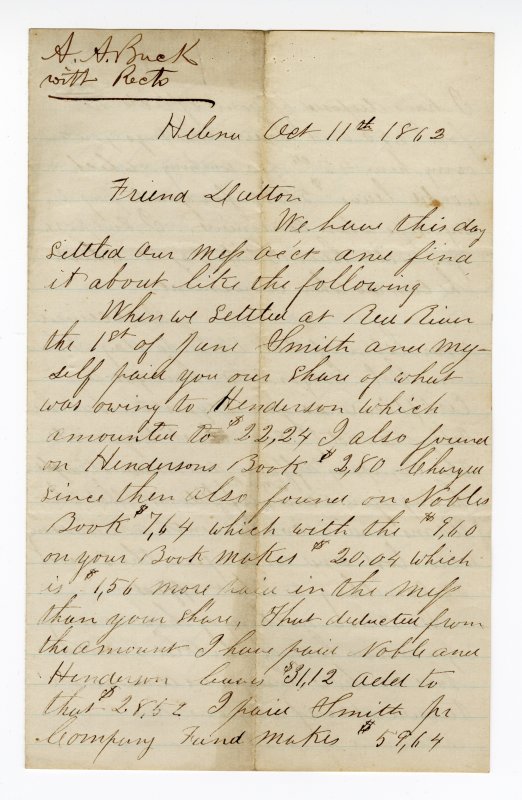 A. A. Buck
with Recto
Helena Oct 11th 1862
Friend Dutton
We have this day
settled our mess acct and find
it about like the following
When we settled at Red River
the 1st of June Smith and my-
self paid you our share of what
was owing to Henderson which
amounted to $22,24 I also found
on Hendersons Book $2,80 Charged
since then also found on Nobles
Book $7,64 which with the $9,60
on your Book makes $20,04 which
is $1,56 more paid in the mess
than your share, That deducted from
the amount I have paid Noble and
Henderson leaves $31,12 add to
that $28,52 I paid Smith pr
Company Fund makes $59,64